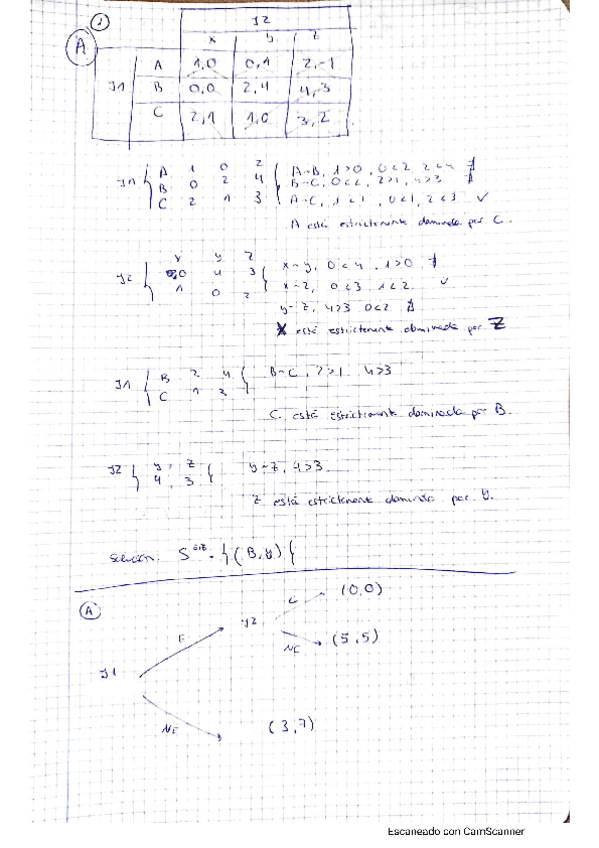 A 1
J2
x y z
J1 A 1,0 0,1 2,-1
B 0,0 2,4 4,3
C 2,1 1,0 3,2
A 1 0 2 A-B, 1>0, 0<2 2<4 ∄
J1 B 0 2 4 B-C, 0<2, 2>1, 4>3 ∄
C 2 1 3 A-C, 1<1, 0<1, 2<3 ✓
A está estrictamente dominada por C.
x y z
J2 0 4 3 x-y, 0<4, 1>0 ∄
1 0 2 x-z, 0<3 1<2 ✓
y-z, 4>3 0<2 ∄
X está estrictamente dominada por Z
J1 B 2 4 B-C, 2>1, 4>3
C 1 3
C está estrictamente dominada por B.
J2 y z y-z, 4>3
4, 3
z está estrictmente dominada por y.
S = {(B,y)}
A
C (0,0)
E J2
NC (5,5)
J1
NE (3,7)
Escaneado con CamScanner